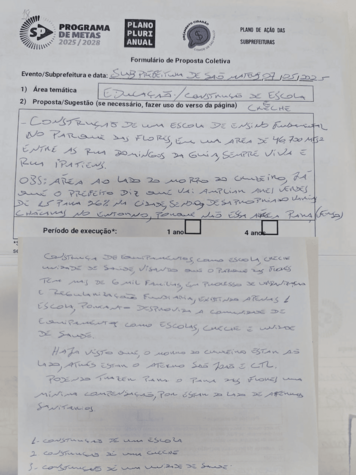 PROGRAMA
DE METAS
2025 / 2028
PLANO
PLURI
ANUAL
PLANO DE AÇÃO DAS
SUBPREFEITURAS
Formulário de Proposta Coletiva
Evento/Subprefeitura e data: SUBPREFEITURA DE SÃO MATEUS
1) Área temática EDUCAÇÃO / CONSTRUÇÃO DE ESCOLA
2) Proposta/Sugestão (se necessário, fazer uso do verso da página) CRECHE
- CONSTRUÇÃO DE UMA ESCOLA DE ENSINO FUNDAMENTAL
NO PARQUE DAS FLORES, EM UMA ÁREA DE
ENTRE AS RUA DOMINGOS DA GUIA, SEMPRE VIVA E
RUA
OBS: ÁREA AO LADO DO MORRO DO CRUZEIRO, JÁ
QUE O PREFEITO DIZ QUE VAI AMPLIAR ÁREA VERDE
DE 15 PARA 26% NA CIDADE, SENDO DESAPROPRIADO
NO ENTORNO, PORQUE NÃO ESSA ÁREA PARA
Período de execução*: 1 ano 4 anos
CONSTRUÇÃO DE EQUIPAMENTOS, COMO ESCOLA, CRECHE
UNIDADE DE SAÚDE, VISANDO QUE O PARQUE DAS FLORES
TEM MAIS DE 6 MIL FAMÍLIAS, EM PROCESSO DE URBANIZAÇÃO
E REGULARIZAÇÃO FUNDIÁRIA, EXISTINDO APENAS 1
ESCOLA, PORTANTO DESPROVIDA A COMUNIDADE DE
EQUIPAMENTOS COMO ESCOLAS, CRECHE E UNIDADE
DE SAÚDE.
HAJA VISTO QUE, O MORRO DO CRUZEIRO ESTAR AO
LADO, ATERRO SÃO JOÃO E CTL.
PODENDO TRAZER PARA O PARQUE DAS FLORES UMA
MÍNIMA COMPENSAÇÃO, POR ESTAR AO LADO DE ATERROS
SANITÁRIOS.
1. CONSTRUÇÃO DE UMA ESCOLA
2. CONSTRUÇÃO DE UMA CRECHE
3. CONSTRUÇÃO DE UMA UNIDADE DE SAÚDE